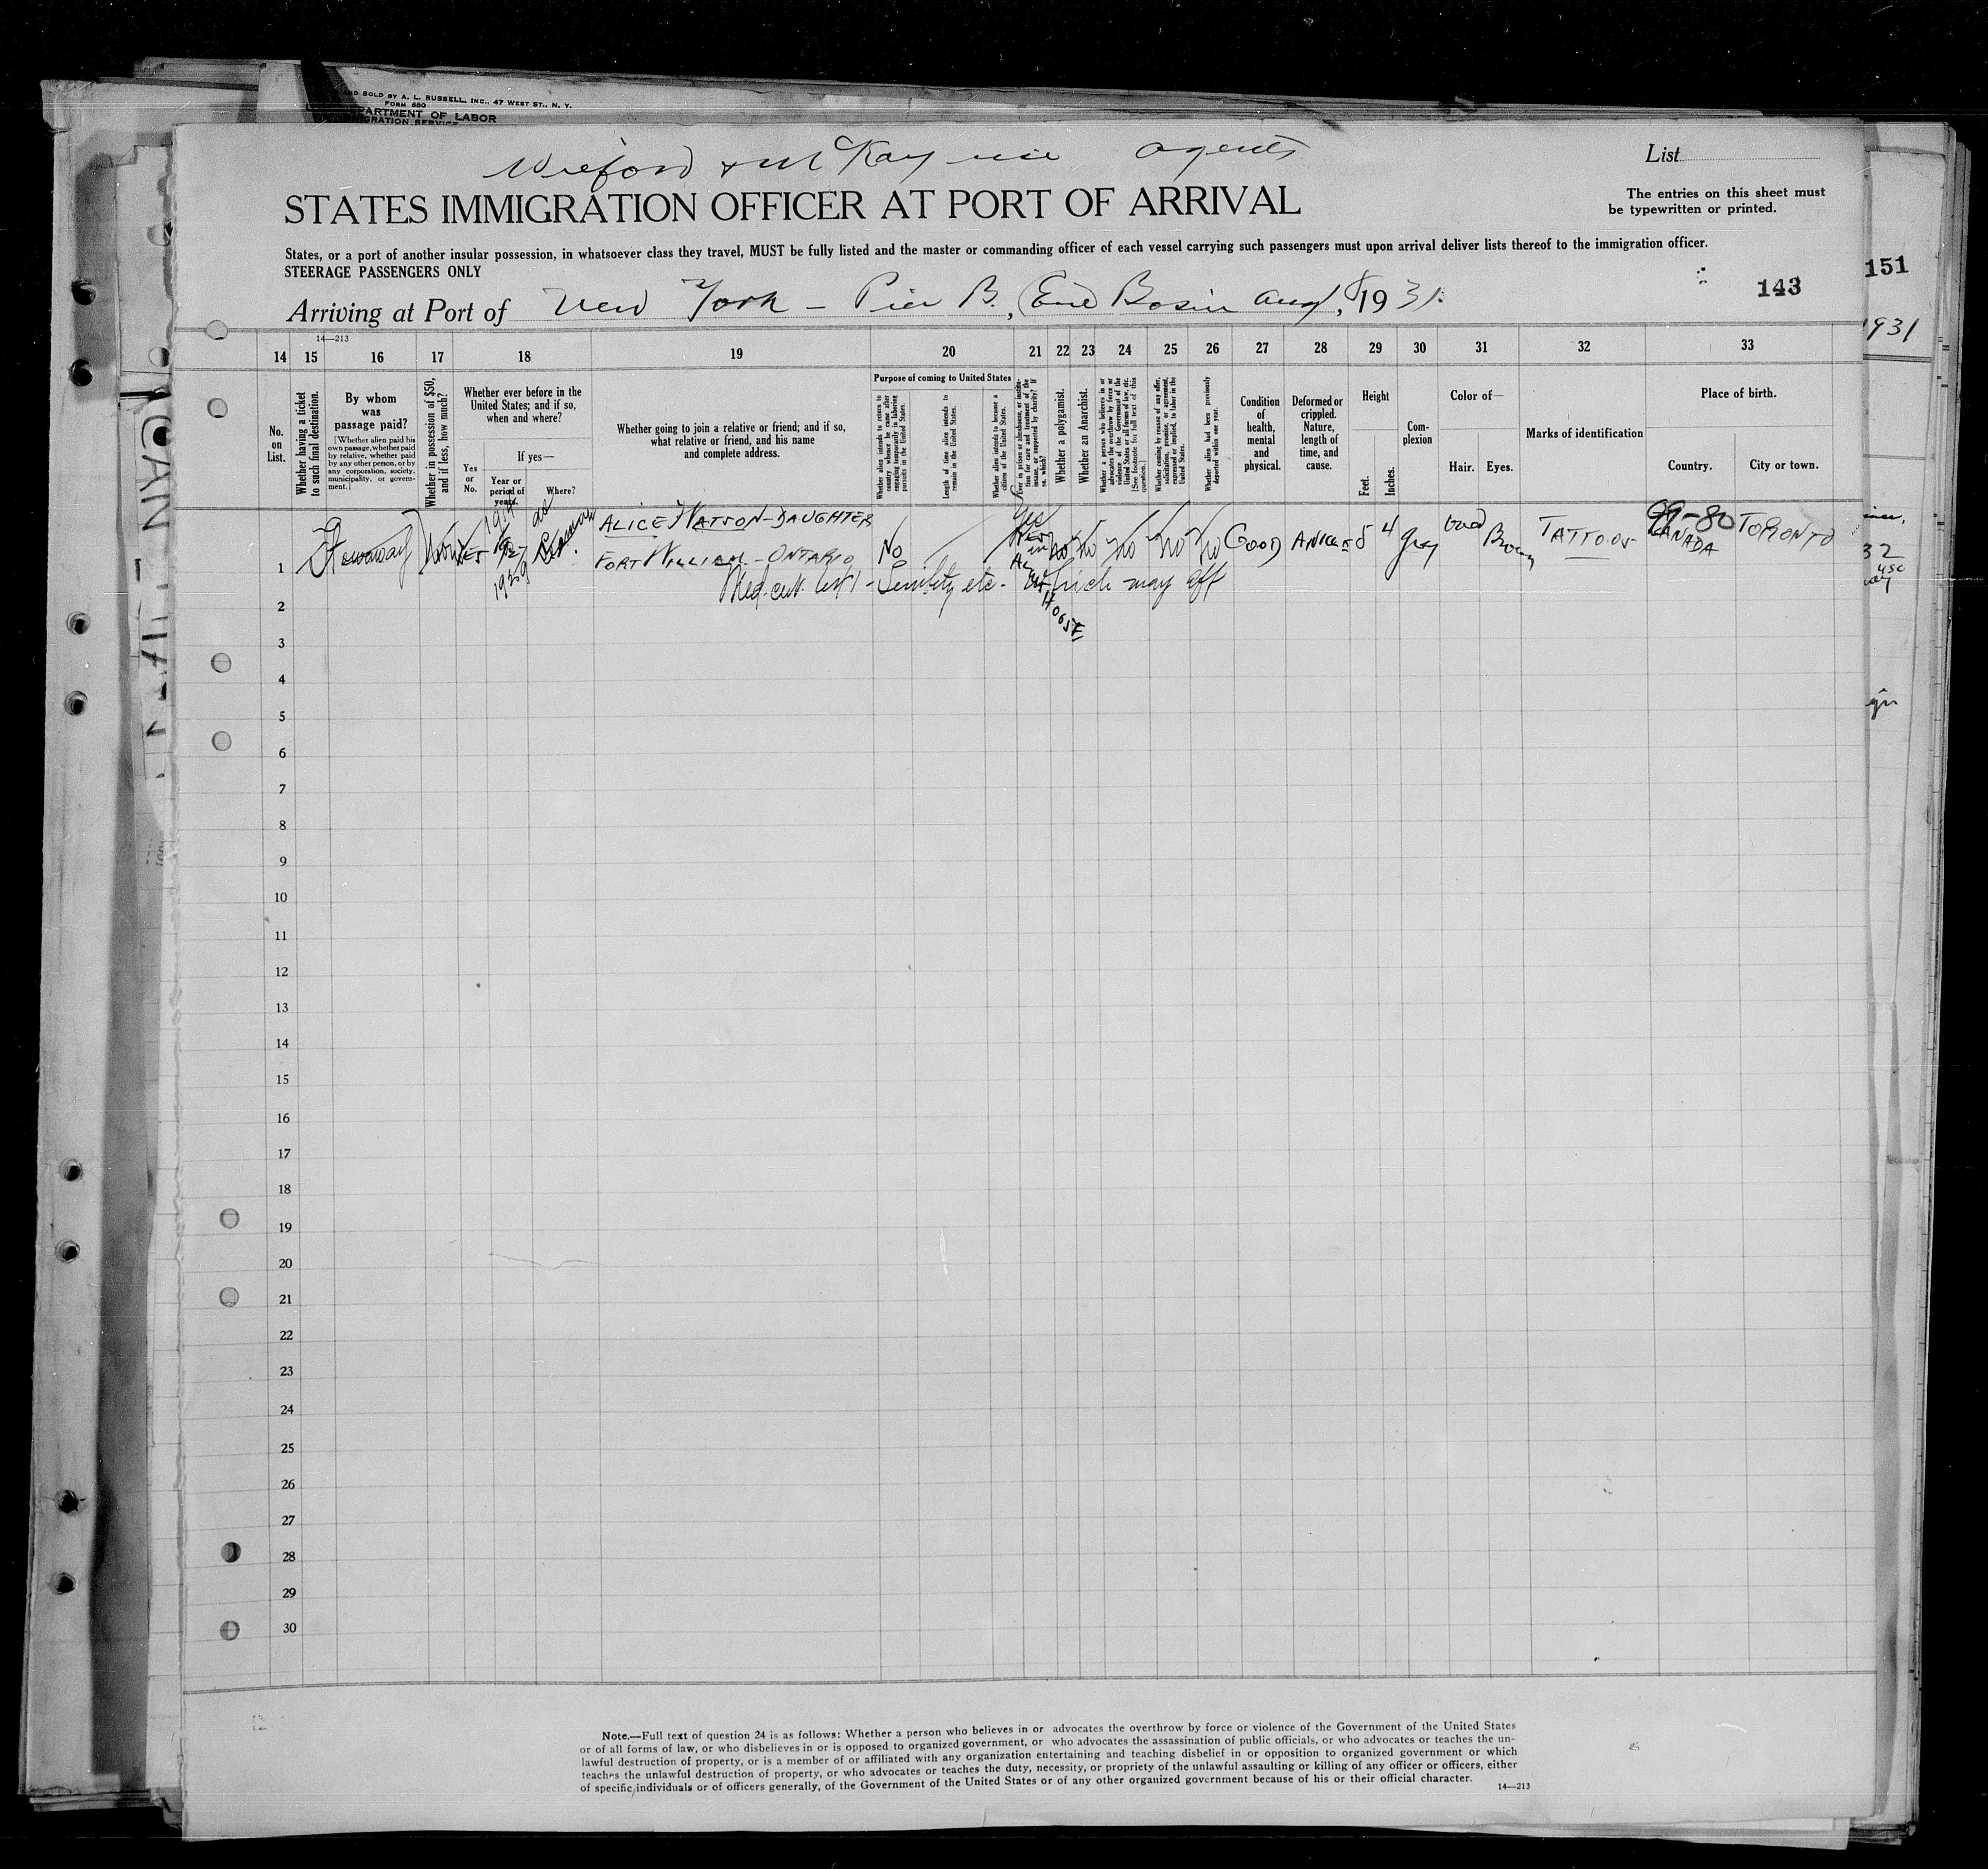 AND SOLD BY A. L. RUSSELL, INC., 47 WEST ST., N. Y.
FORM 680
PARTMENT OF LABOR
GRATION SERVICE
McKay agents
List
STATES IMMIGRATION OFFICER AT PORT OF ARRIVAL
The entries on this sheet must
be typewritten or printed.
States, or a port of another insular possession, in whatsoever class they travel, MUST be fully listed and the master or commanding officer of each vessel carrying such passengers must upon arrival deliver lists thereof to the immigration officer.
STEERAGE PASSENGERS ONLY
151
143
Arriving at Port of New York - Pier B., Erie Basin Aug 8, 1931.
931
14—213
14 15 16 17 18 19 20 21 22 23 24 25 26 27 28 29 30 31 32 33
No. on List.
Whether having a ticket to such final destination.
By whom was passage paid?
[Whether alien paid his own passage, whether paid by relative, whether paid by any other person, or by any corporation, society, municipality, or government.]
Whether in possession of $50, and if less, how much?
Whether ever before in the United States; and if so, when and where?
Yes or No.
If yes—
Year or period of years.
Where?
Whether going to join a relative or friend; and if so, what relative or friend, and his name and complete address.
Purpose of coming to United States
Whether alien intends to return to country whence he came after engaging temporarily in laboring pursuits in the United States.
Length of time alien intends to remain in the United States.
Whether alien intends to become a citizen of the United States.
Ever in prison or almshouse, or institution for care and treatment of the insane, or supported by charity? If so, which?
Whether a polygamist.
Whether an Anarchist.
Whether a person who believes in or advocates the overthrow by force or violence of the Government of the United States or all forms of law, etc. [See footnote for full text of this question.]
Whether coming by reason of any offer, solicitation, promise, or agreement, expressed or implied, to labor in the United States.
Whether alien had been previously deported within one year.
Condition of health, mental and physical.
Deformed or crippled. Nature, length of time, and cause.
Height
Feet.
Inches.
Complexion
Color of—
Hair. Eyes.
Marks of identification
Place of birth.
Country. City or town.
ALICE WATSON - DAUGHTER
99-80
1 Stowaway None YES 1929 FORT WILLIAM - ONTARIO No Yes No No No No No GOOD ANKLE 5 4 Gray Brown TATTOOS CANADA TORONTO
Med. cert. - Senility etc. which may aff
HOUSE
2
3
4
5
6
7
8
9
10
11
12
13
14
15
16
17
18
19
20
21
22
23
24
25
26
27
28
29
30
Note.—Full text of question 24 is as follows: Whether a person who believes in or advocates the overthrow by force or violence of the Government of the United States
or of all forms of law, or who disbelieves in or is opposed to organized government, or who advocates the assassination of public officials, or who advocates or teaches the un-
lawful destruction of property, or is a member of or affiliated with any organization entertaining and teaching disbelief in or opposition to organized government or which
teaches the unlawful destruction of property, or who advocates or teaches the duty, necessity, or propriety of the unlawful assaulting or killing of any officer or officers, either
of specific individuals or of officers generally, of the Government of the United States or of any other organized government because of his or their official character.
14—213